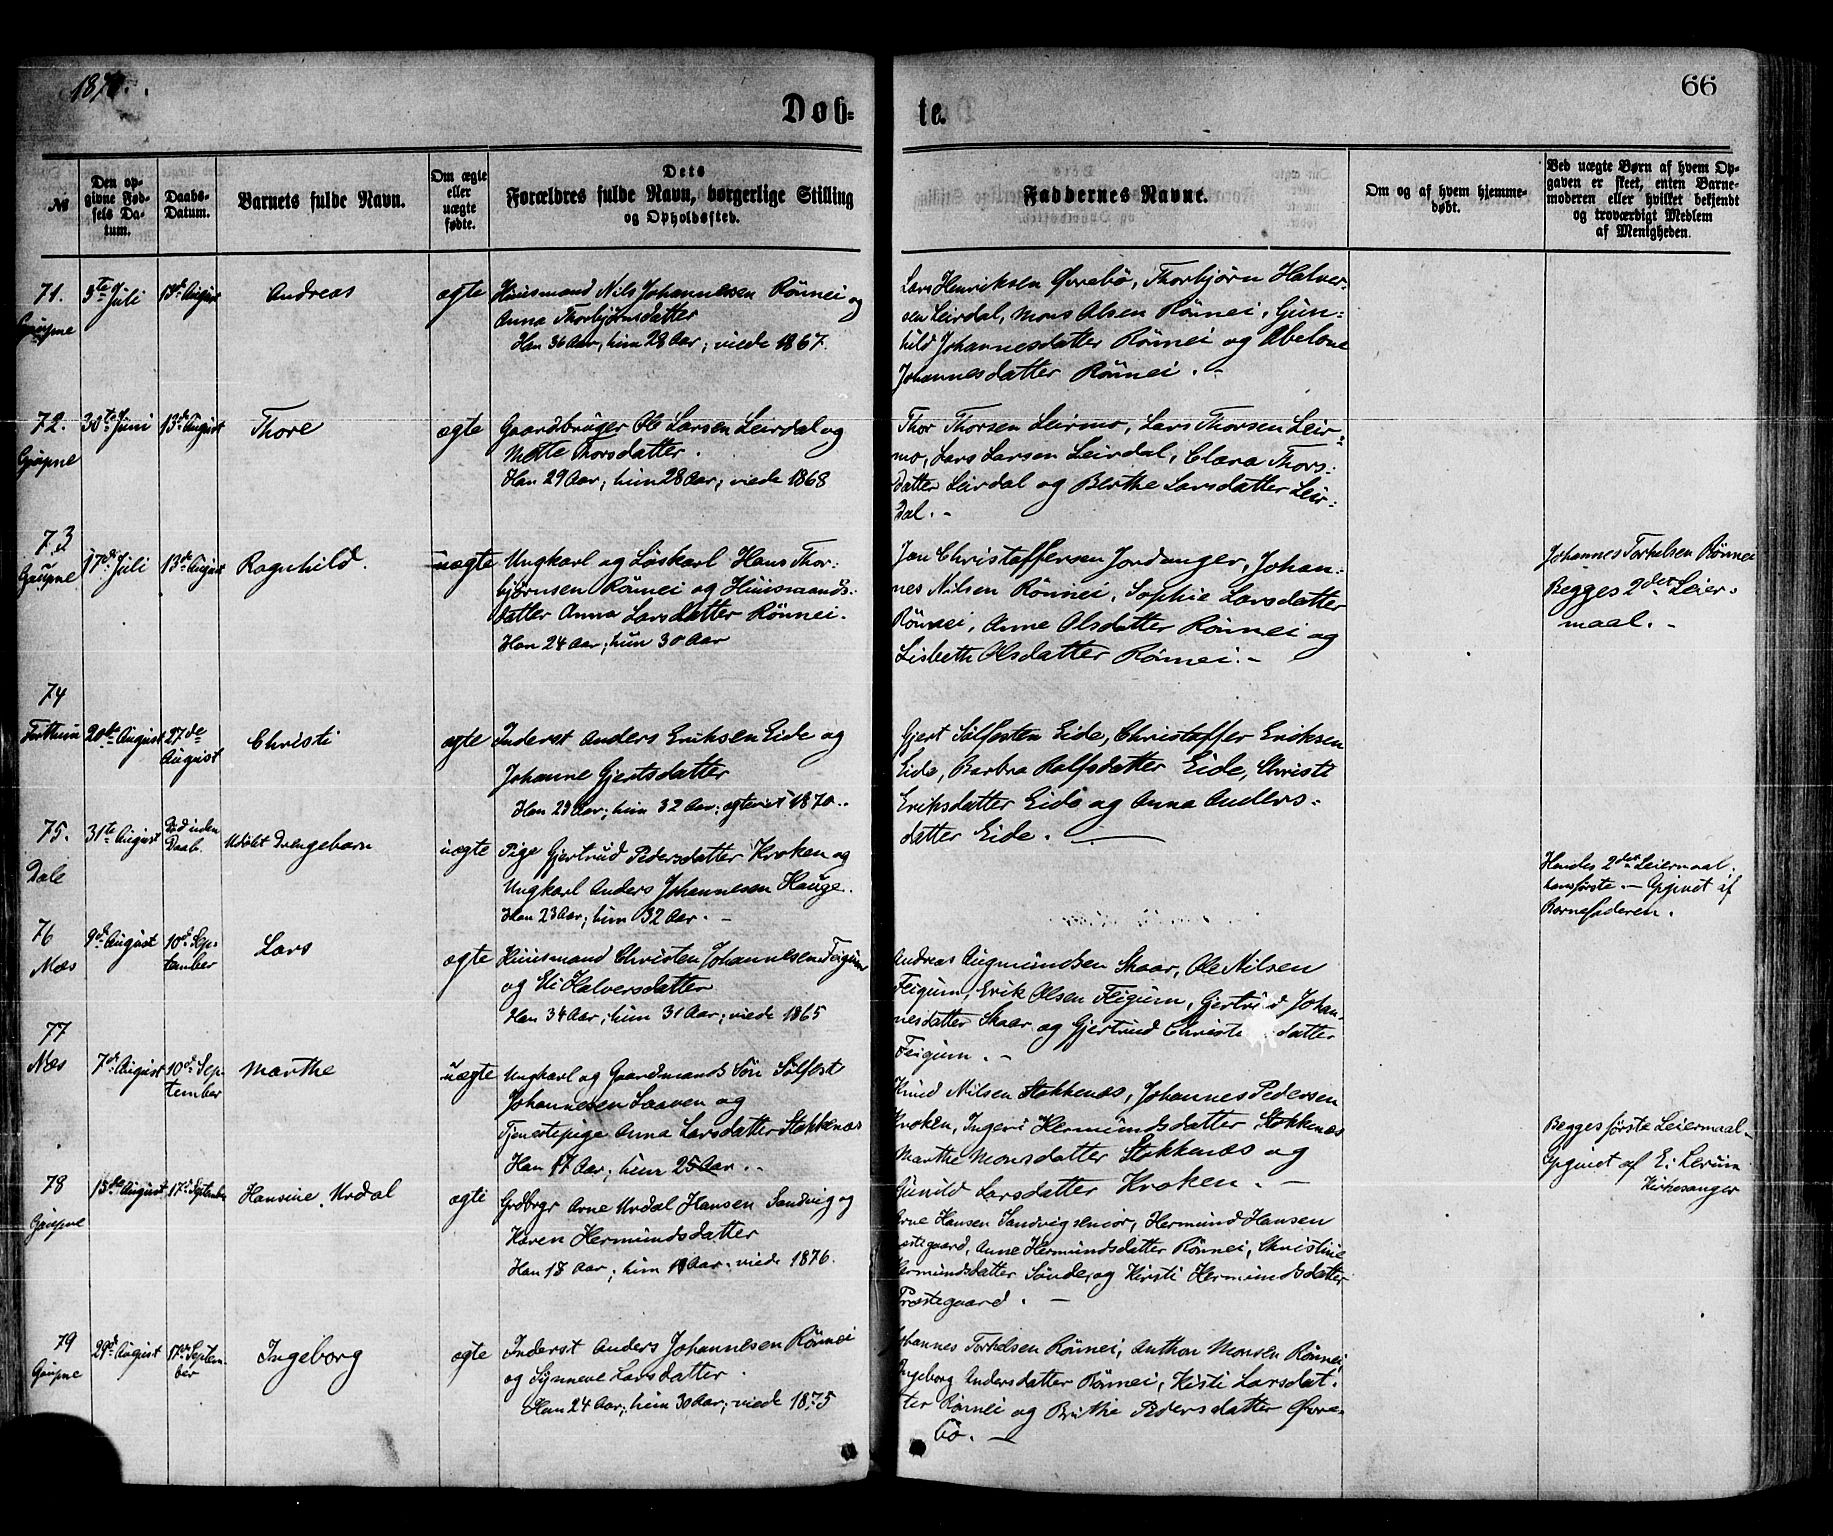 66
Døb-
te.
№
Den op-
givne Fød-
sels Da-
tum.
Daabs-
Datum.
Barnets fulde Navn.
Om ægte
eller
uægte
fødte.
Dets
Forældres fulde Navn, borgerlige Stilling
og Opholdssted.
Faddernes Navne.
Om og af hvem hjemme-
døbt.
Ved uægte Børn af hvem Op-
gaven er skeet, enten Barne-
moderen eller hvilket bekjendt
og troværdigt Medlem
af Menigheden.
71.
Gaupne
5te Juli
13de August
Andreas
ægte
Huusmand Nils Johannessen Rönnei og
Anna Thorbjörnsdatter
Han 36 Aar, hun 28 Aar; viede 1867.
Lars Henriksen Øvrebö, Thorbjörn Halver-
sen Leirdal, Mons Olsen Rönnei, Gun-
hild Johannesdatter Rönnei og Abelone
Johannesdatter Rönnei. -
72.
Gaupne
30te Juni
13de August
Thore
ægte
Gaardbruger Ole Larsen Leirdal og
Mette Thorsdatter.
Han 29 Aar, hun 28 Aar; viede 1868
Thor Thorsen Leirmo, Lars Thorsen Leir-
mo, Lars Larsen Leirdal, Clara Thors-
datter Leirdal og Berthe Larsdatter Leir-
dal. -
73
Gaupne
17de Juli
13de August
Ragnhild.
uægte
Ungkarl og Löskarl Hans Thor-
bjørnsen Rönnei og Huusmands-
datter Anna Larsdatter Rönnei.
Han 24 Aar; hun 30 Aar
Jon Christaffersen Jordanger, Johan-
nes Nilsen Rönnei, Sophie Larsdatter
Rönnei, Anne Olsdatter Rönnei og
Lisbeth Olsdatter Rönnei. -
Johannes Torkelsen Rönnei
Begges 2det Leier-
maal. -
74
Forthun
20de August
27de
August
Christi
ægte
Inderst Anders Eriksen Eide og
Johanne Gjertsdatter
Han 28 Aar; hun 32 Aar; ægteviet 1870..
Gjert Sölfesten Eide, Christaffer Eriksen
Eide, Barbra Rolfsdatter Eide, Christi
Eriksdatter Eide og Anna Anders-
datter Eide. —
75.
Dale
31te August
Död uden
Daab.
Udöbt Drengebarn
uægte
Pige Gjertrud Pedersdatter Kroken og
Ungkarl Anders Johannesen Hauge.
Han 23 Aar; hun 32 Aar. -
Hendes 2det Leiermaal;
hans förste. - Opgivet af
Barnefaderen.
76
Næs
9de August
10de Sep-
tember
Lars
ægte
Huusmand Christen Johannesen Feigum
og Eli Halversdatter
Han 34 Aar; hun 31 Aar; viede 1865
Andreas Augmundsen Skaar, Ole Nilsen
Feigum, Erik Olsen Feigum, Gjertrud Johan-
nesdatter Skaar og Gjertrud Christe datter
Feigum. -
77
Næs
7de August
10de Sep-
tember
Marthe
uægte
Ungkarl og Gaardmands Sön Sölfest
Johannesen Laaven og
Tjenestepige Anna Larsdatter Stokkenæs
Han 17 Aar; hun 25 Aar..
Knud Nilsen Stokkenæs, Johannes Pedersen
Kroken, Ingeri Hermundsdatter Stokkenæs
Marthe Monsdatter Stokkenæs og
Gunild Larsdatter Kroken. -
Begges förste Leiermaal -
Opgivet af E: Lerum
Kirkesanger
78
Gaupne
15de August
17de September
Hansine Urdal
ægte
Grdbrgr Arne Urdal Hansen Sandvig og
Karen Hermundsdatter
Han 18 Aar; hun Aar. viede 1876.
Arne Hansen Sandvig senior, Hermund Hansen
Præstegaard, Anne Hermundsdatter Rönnei, Christine
Hermundsdatter Sönde, og Kirsti Hermundsdatter
Præstegaard. -
79
Gaupne
29de August
17de Septem-
ber
Ingeborg
ægte
Inderst Anders Johannesen Rönnei
og Synneve Larsdatter.
Han 24 Aar; hun 30 Aar; viede 1875
Johannes Torkelsen Rönnei, Anthon Monsen Rönnei,
Ingeborg Andersdatter Rönnei, Kisti Larsdat-
ter Rönnei og Brithe Pedersdatter Øvre-
bö. —